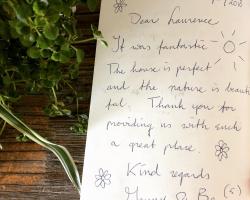 Dear Laurence
It was fantastic
The house is perfect
and the nature is beauti
ful. Thank you for
providing us with such
a great plase.
Kind regards